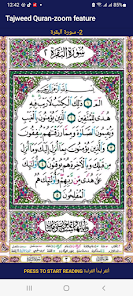 12:42
Tajweed Quran-zoom feature
2- سورة البقرة
سُورَةُ الْبَقَرَةِ
الٓمّٓ ذٰلِكَ الْكِتٰبُ لَا رَيْبَ فِيْهِ
هُدًى لِّلْمُتَّقِيْنَ الَّذِيْنَ يُؤْمِنُوْنَ
بِالْغَيْبِ وَيُقِيْمُوْنَ الصَّلٰوةَ وَمِمَّا
رَزَقْنٰهُمْ يُنْفِقُوْنَ وَالَّذِيْنَ يُؤْمِنُوْنَ
بِمَآ اُنْزِلَ اِلَيْكَ وَمَآ اُنْزِلَ مِنْ
قَبْلِكَ وَبِالْاٰخِرَةِ هُمْ يُوْقِنُوْنَ
اُولٰٓئِكَ عَلٰى هُدًى مِّنْ رَّبِّهِمْ وَ
اُولٰٓئِكَ هُمُ الْمُفْلِحُوْنَ
PRESS TO START READING أنقر لبدأ القراءة